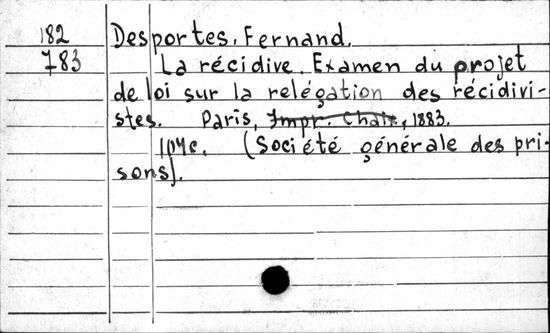 182 Desportes, Fernand.
783 La récidive. Examen du projet
de loi sur la relégation des récidivi-
stes. Paris, Impr. Chaix, 1883.
(Société générale des pri-
sons).